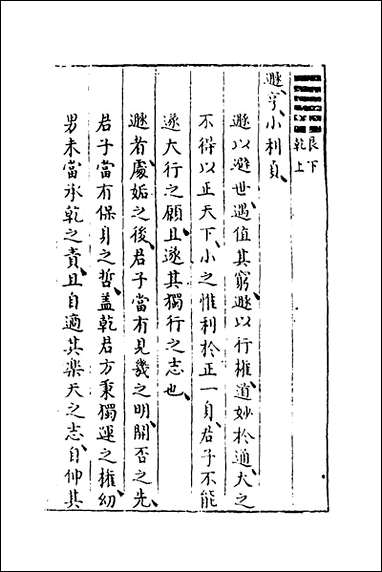 艮下
乾上
遯亨小利貞
遯以避世遇值其窮遯以行權道妙於通大之
不得以正天下小之惟利於正一身君子不能
遂大行之願且遂其獨行之志也
遯者處姤之後君子當有見幾之明開否之先
君子當有保身之哲蓋乾君方秉獨運之權幼
男未當承乾之責且自適其樂天之志自仰其